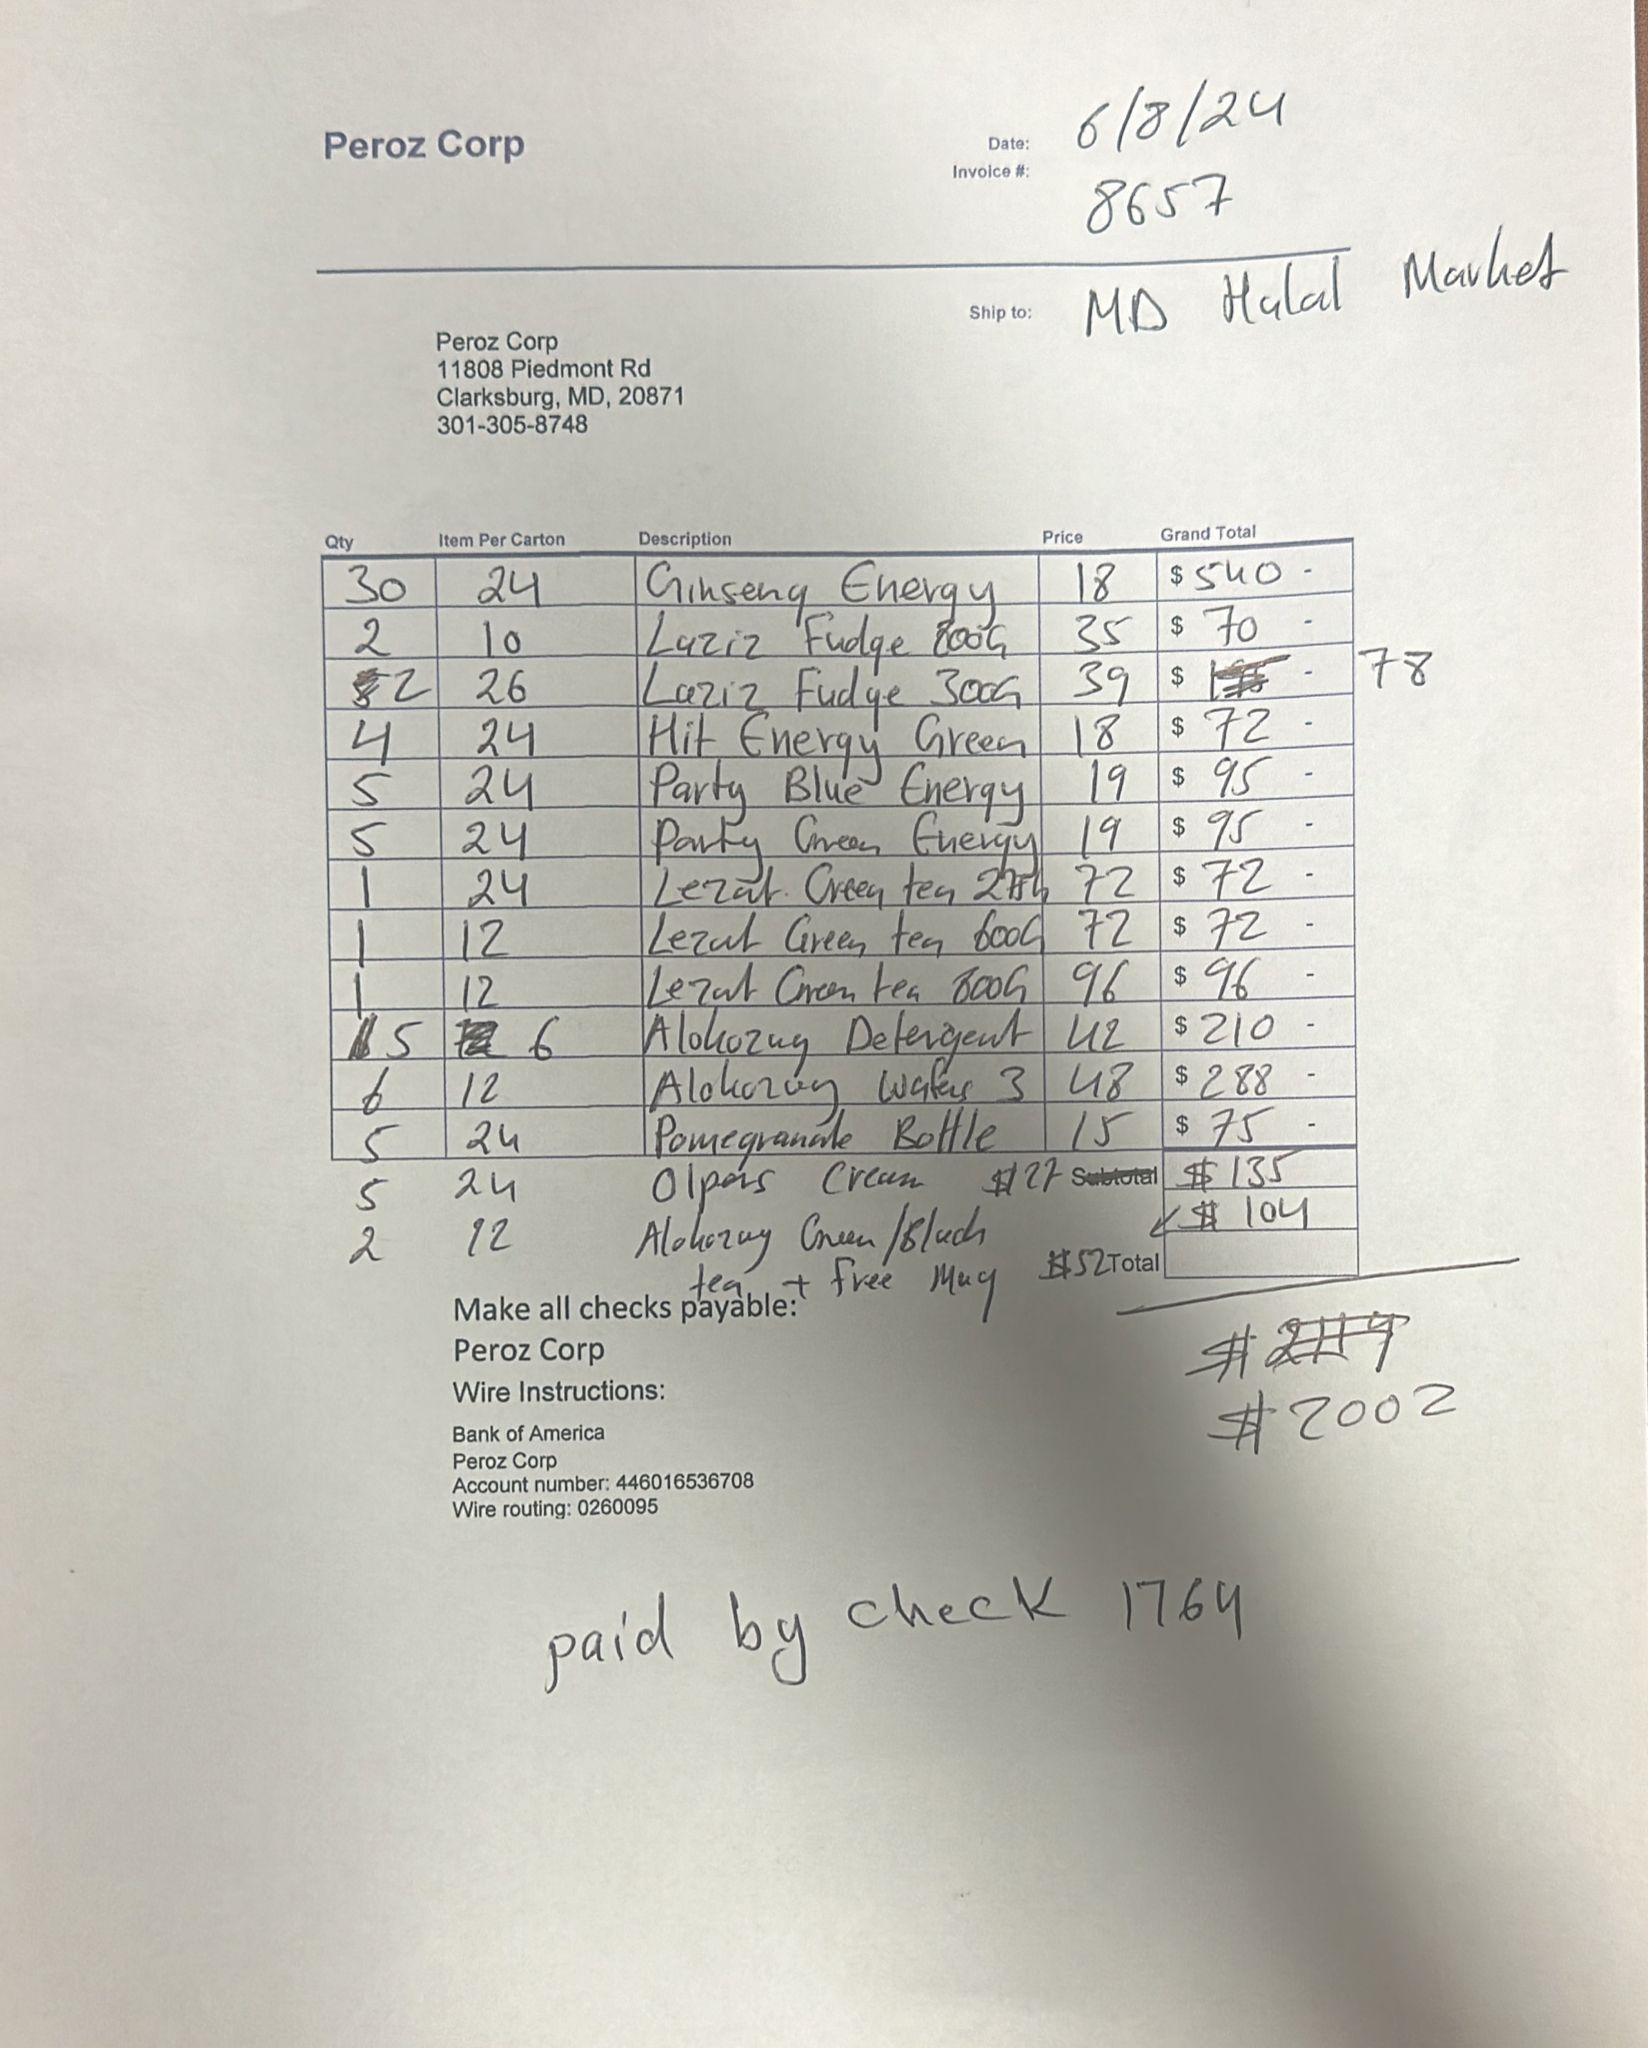 Peroz Corp
Date: 6/8/24
Invoice #: 8657
Ship to: MD Halal Market
Peroz Corp
11808 Piedmont Rd
Clarksburg, MD, 20871
301-305-8748
Qty Item Per Carton Description Price Grand Total
30 24 Ginseng Energy 18 $ 540 -
2 10 Laziz Fudge 800G 35 $ 70 -
2 26 Laziz Fudge 300G 39 $ - 78
4 24 Hit Energy Green 18 $ 72 -
5 24 Party Blue Energy 19 $ 95 -
5 24 Party Green Energy 19 $ 95 -
1 24 Lezat Green tea 72 $ 72 -
1 12 Lezat Green tea 600G 72 $ 72 -
1 12 Lezat Green tea 800G 96 $ 96 -
5 6 Alokozay Detergent 42 $ 210 -
6 12 Alokozay Wafers 3 48 $ 288 -
5 24 Pomegranate Bottle 15 $ 75 -
5 24 Olpers Cream $27 Subtotal $ 135
2 12 Alokozay Green/Black $ 104
tea + Free Mug $52 Total
Make all checks payable:
Peroz Corp
$ 2002
Wire Instructions:
Bank of America
Peroz Corp
Account number: 446016536708
Wire routing: 0260095
paid by check 1764